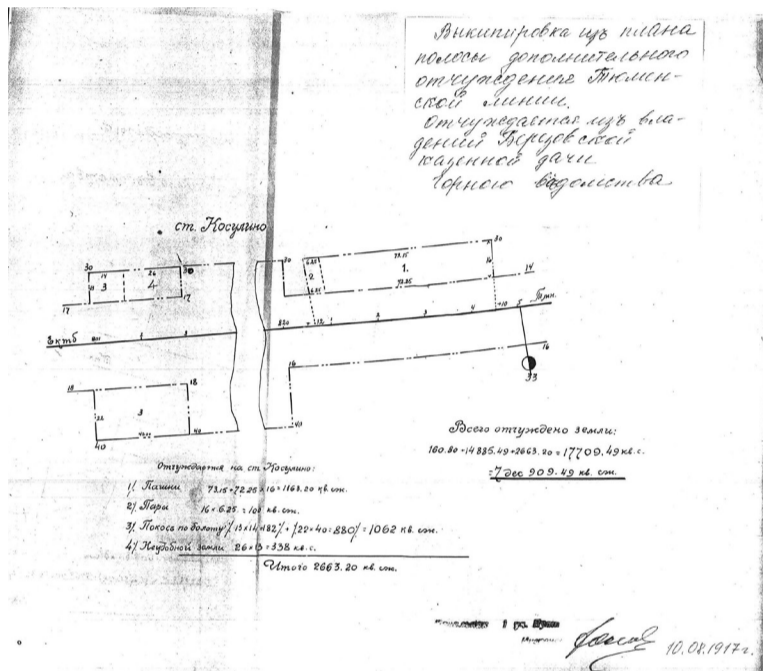 Выкипировка изъ плана
полосы дополнительного
отчуждения Тюмен-
ской линии.
Отчуждается изъ вла-
дений
казенной дачи
Горного ведомства
ст. Косулино
30 14 26 30 30 6.25 73.15 30
3 4 2 1. 16 14
17 17 6.25 72.25
Ектб 1 2 820 1 2 3 4 +10 5 Тюм.
18 18 16 16
33
22 3
40 40 40
Всего отчуждено земли:
160.80+14885.49+2663.20=17709.49 кв. с.
=7 дес 909.49 кв. сж.
Отчуждается на ст. Косулино:
1/. Пашни 73.15+72.25×16=1163.20 кв. сж.
2/. Пары 16×6.25=100 кв. сж.
3/. Покосъ по болоту /13×14=182/+/22×40=880/=1062 кв. сж.
4/. Неудобной земли 26×13=338 кв. с.
Итого 2663.20 кв. сж.
10.08.1917 г.